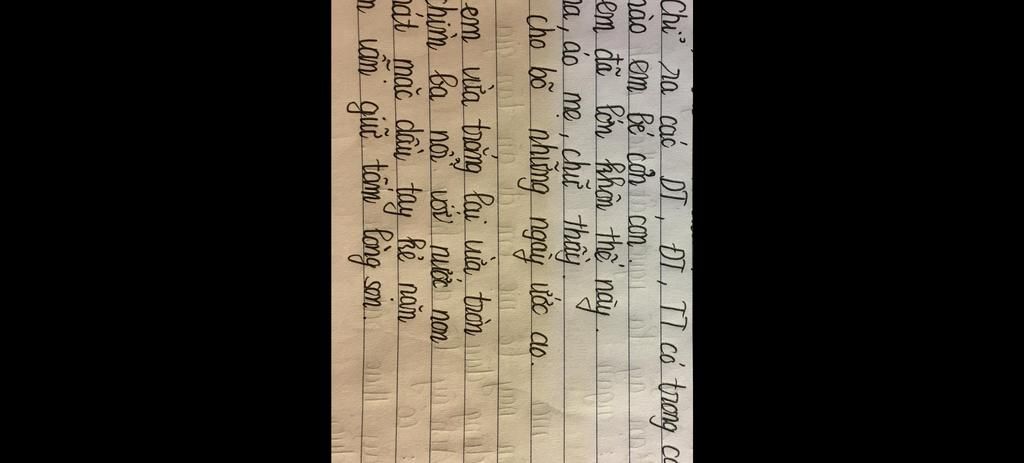 Chỉ ra các DT, ĐT, TT có trong
nào em bé còn con
em đã lớn khôn thế này.
áo mẹ, chữ thầy
cho bõ những ngày ước ao.
em vừa trắng lại vừa tròn
chìm ba nổi với nước non
mặc dầu tay kẻ nặn
vẫn giữ tấm lòng son.